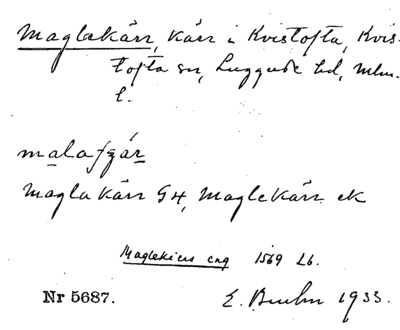 Maglakärr, kärr i Kvistofta, Kvis-
tofta sn, Luggude hd, Mlm.
l.
malafzár
Magla kärr GH, Maglekärr ek
Maglekier eng 1569 Lb.
Nr 5687. E. Bruhn 1933.